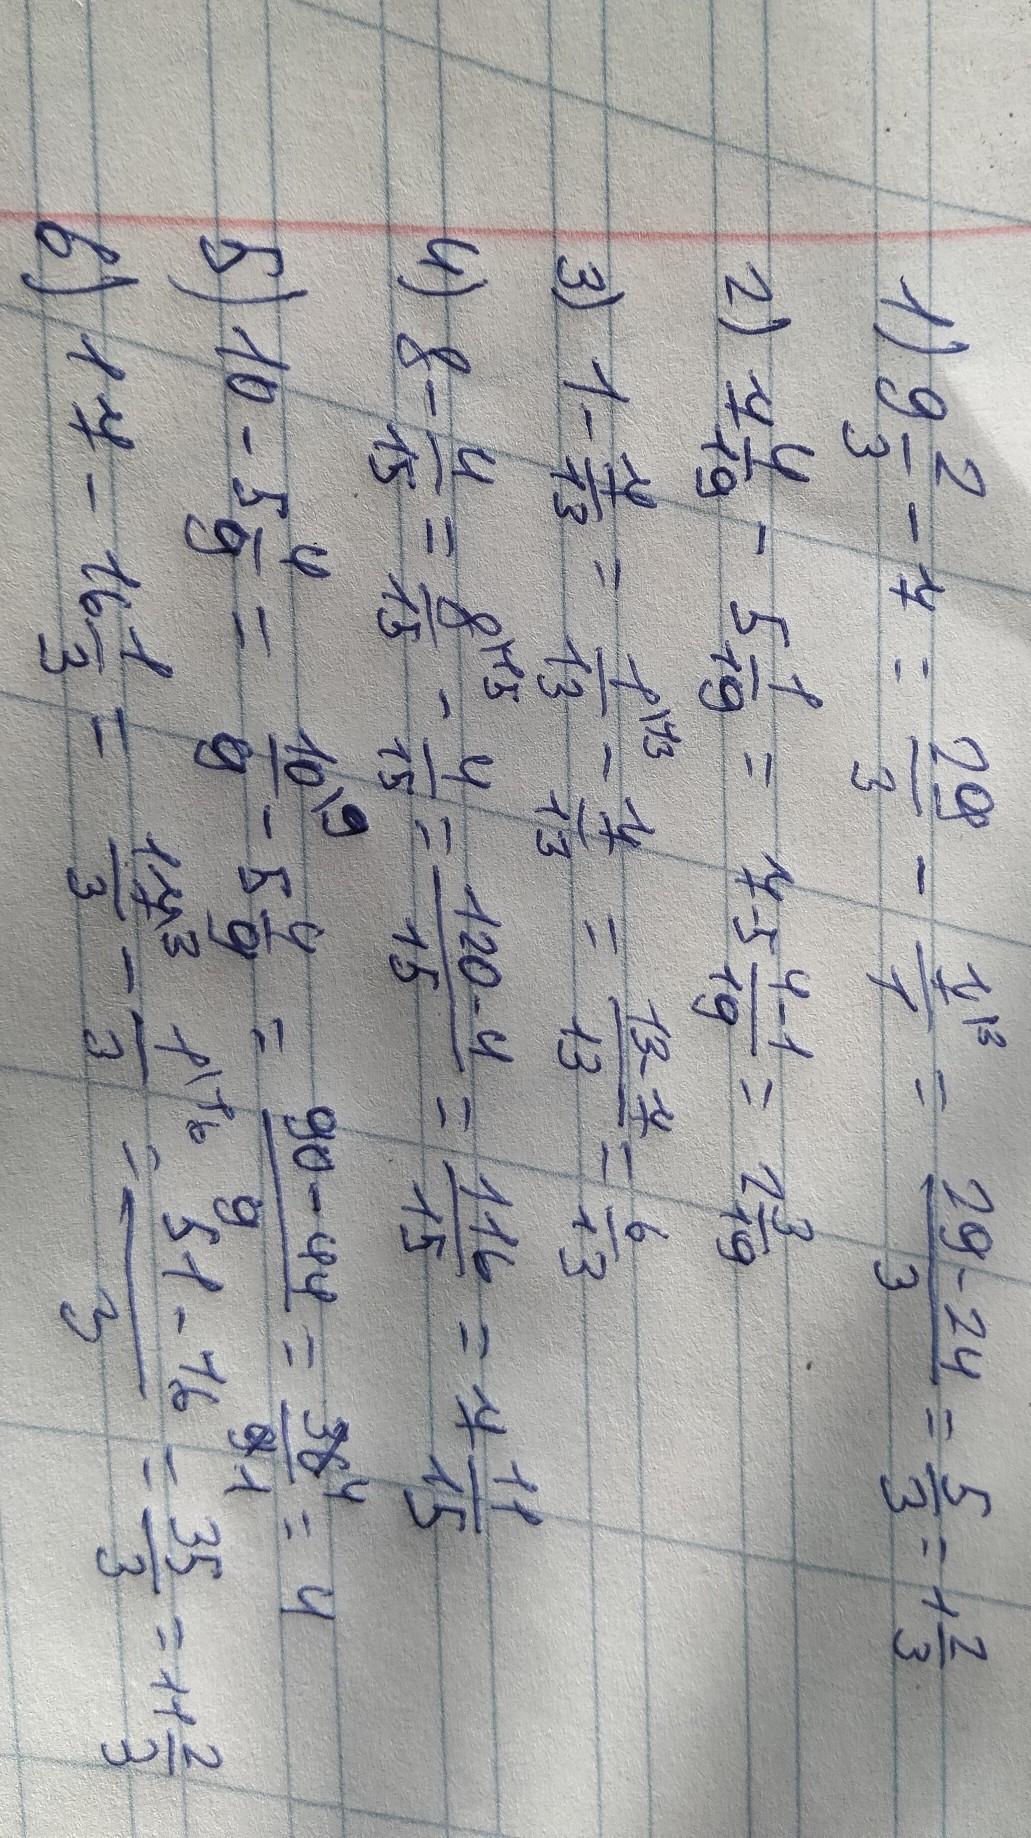 1) 9 2/3 - 7 = 29/3 - 7\3/1 = 29-24/3 = 5/3 = 1 2/3
2) 7 4/19 - 5 1/19 = 7-5 4-1/19 = 2 3/19
3) 1 - 7/13 = 1\13/13 - 7/13 = 13-7/13 = 6/13
4) 8 - 4/15 = 8\15/15 - 4/15 = 120-4/15 = 116/15 = 7 11/15
5) 10 - 5 4/9 = 10\9/9 - 5 4/9 = 90-44/9 = 36 4/9 1 = 4
6) 17 - 16 1/3 = 17\3/3 - 1\16/3 = 51-16/3 = 35/3 = 11 2/3